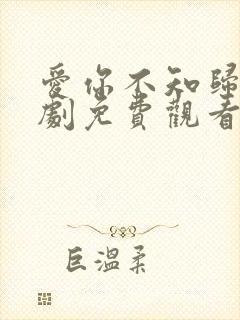 愛你不知歸
劇免費觀看
巨溫柔